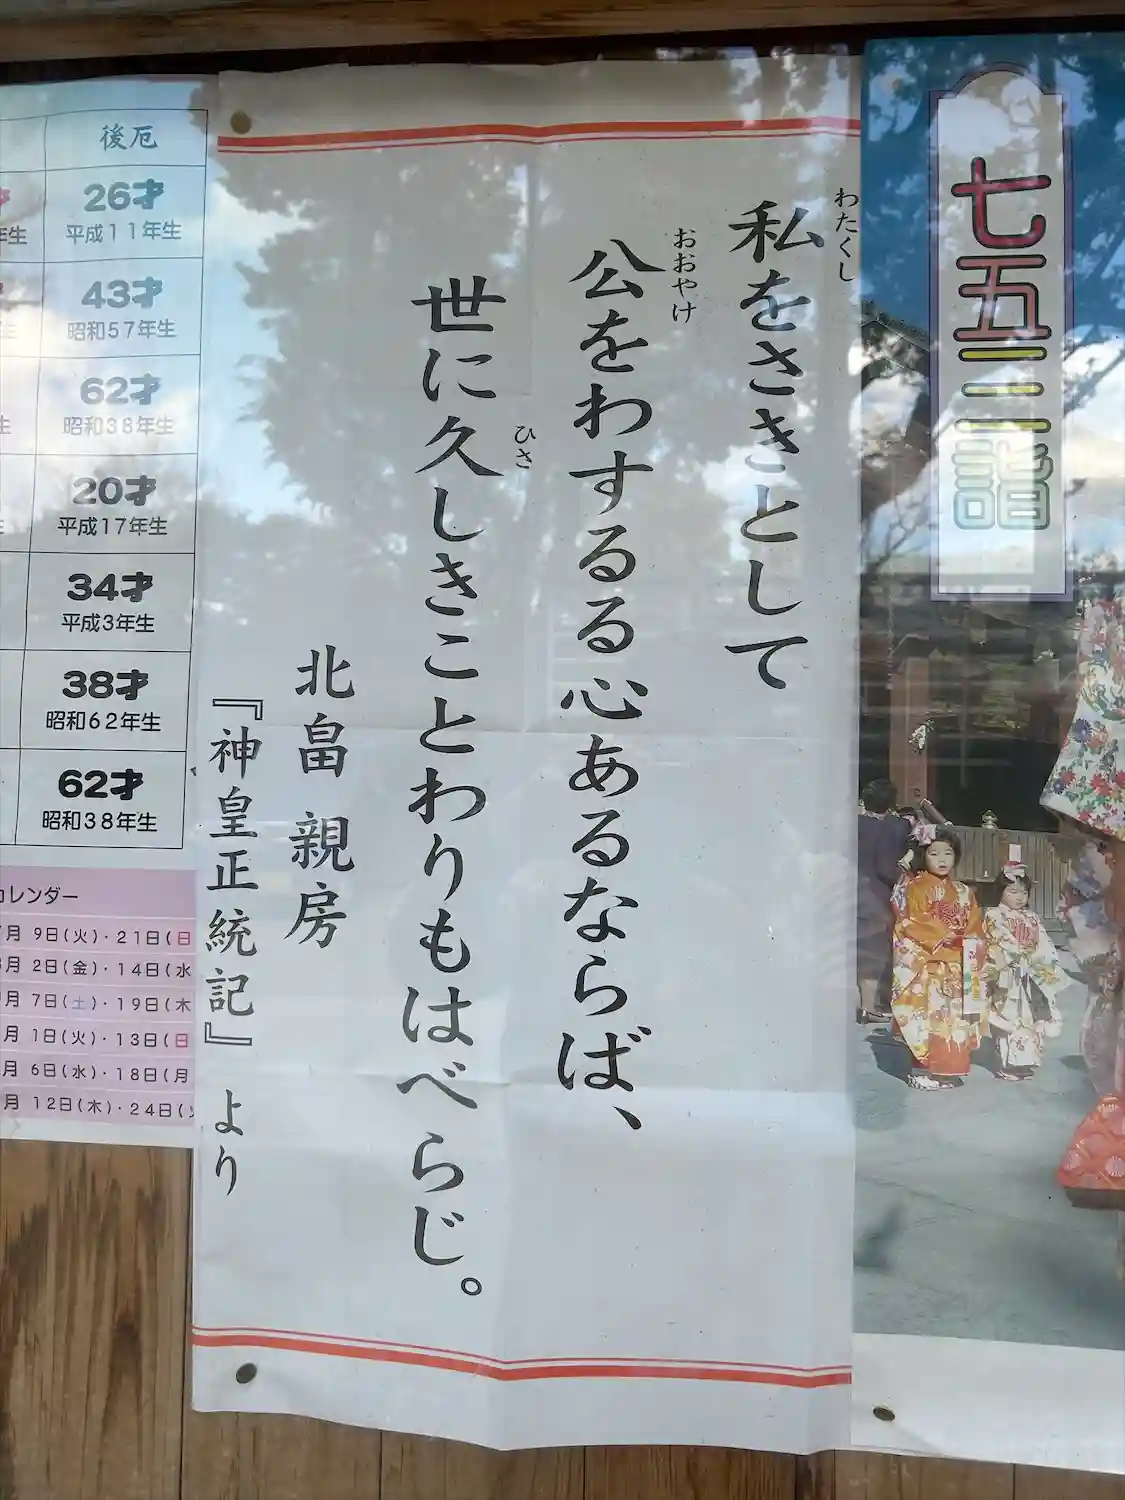 七五三詣
わたくし
私をさきとして
おおやけ
公をわするる心あるならば、
ひさ
世に久しきことわりもはべらじ。
北畠 親房
『神皇正統記』 より
後厄
26才
平成11年生
43才
昭和57年生
62才
昭和38年生
20才
平成17年生
34才
平成3年生
38才
昭和62年生
62才
昭和38年生
年生
生
生
カレンダー
月 9日(火)・21日(日
月 2日(金)・14日(水
月 7日(土)・19日(木
月 1日(火)・13日(日
月 6日(水)・18日(月
月 12日(木)・24日(火